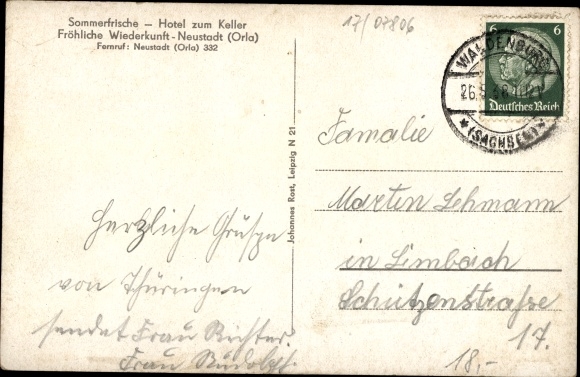 Sommerfrische – Hotel zum Keller
Fröhliche Wiederkunft - Neustadt (Orla)
Fernruf: Neustadt (Orla) 332
17/07806
6 6
Deutsches Reich
WALDENBURG
26.5.
(SACHSEN)
Johannes Rost, Leipzig N 21
Famalie
Marten Lehmann
in Limbach
Schützenstraße
17.
Herzliche Grüße
von Thüringen
sendet Frau Richter.
Frau Rudolph.
18,-